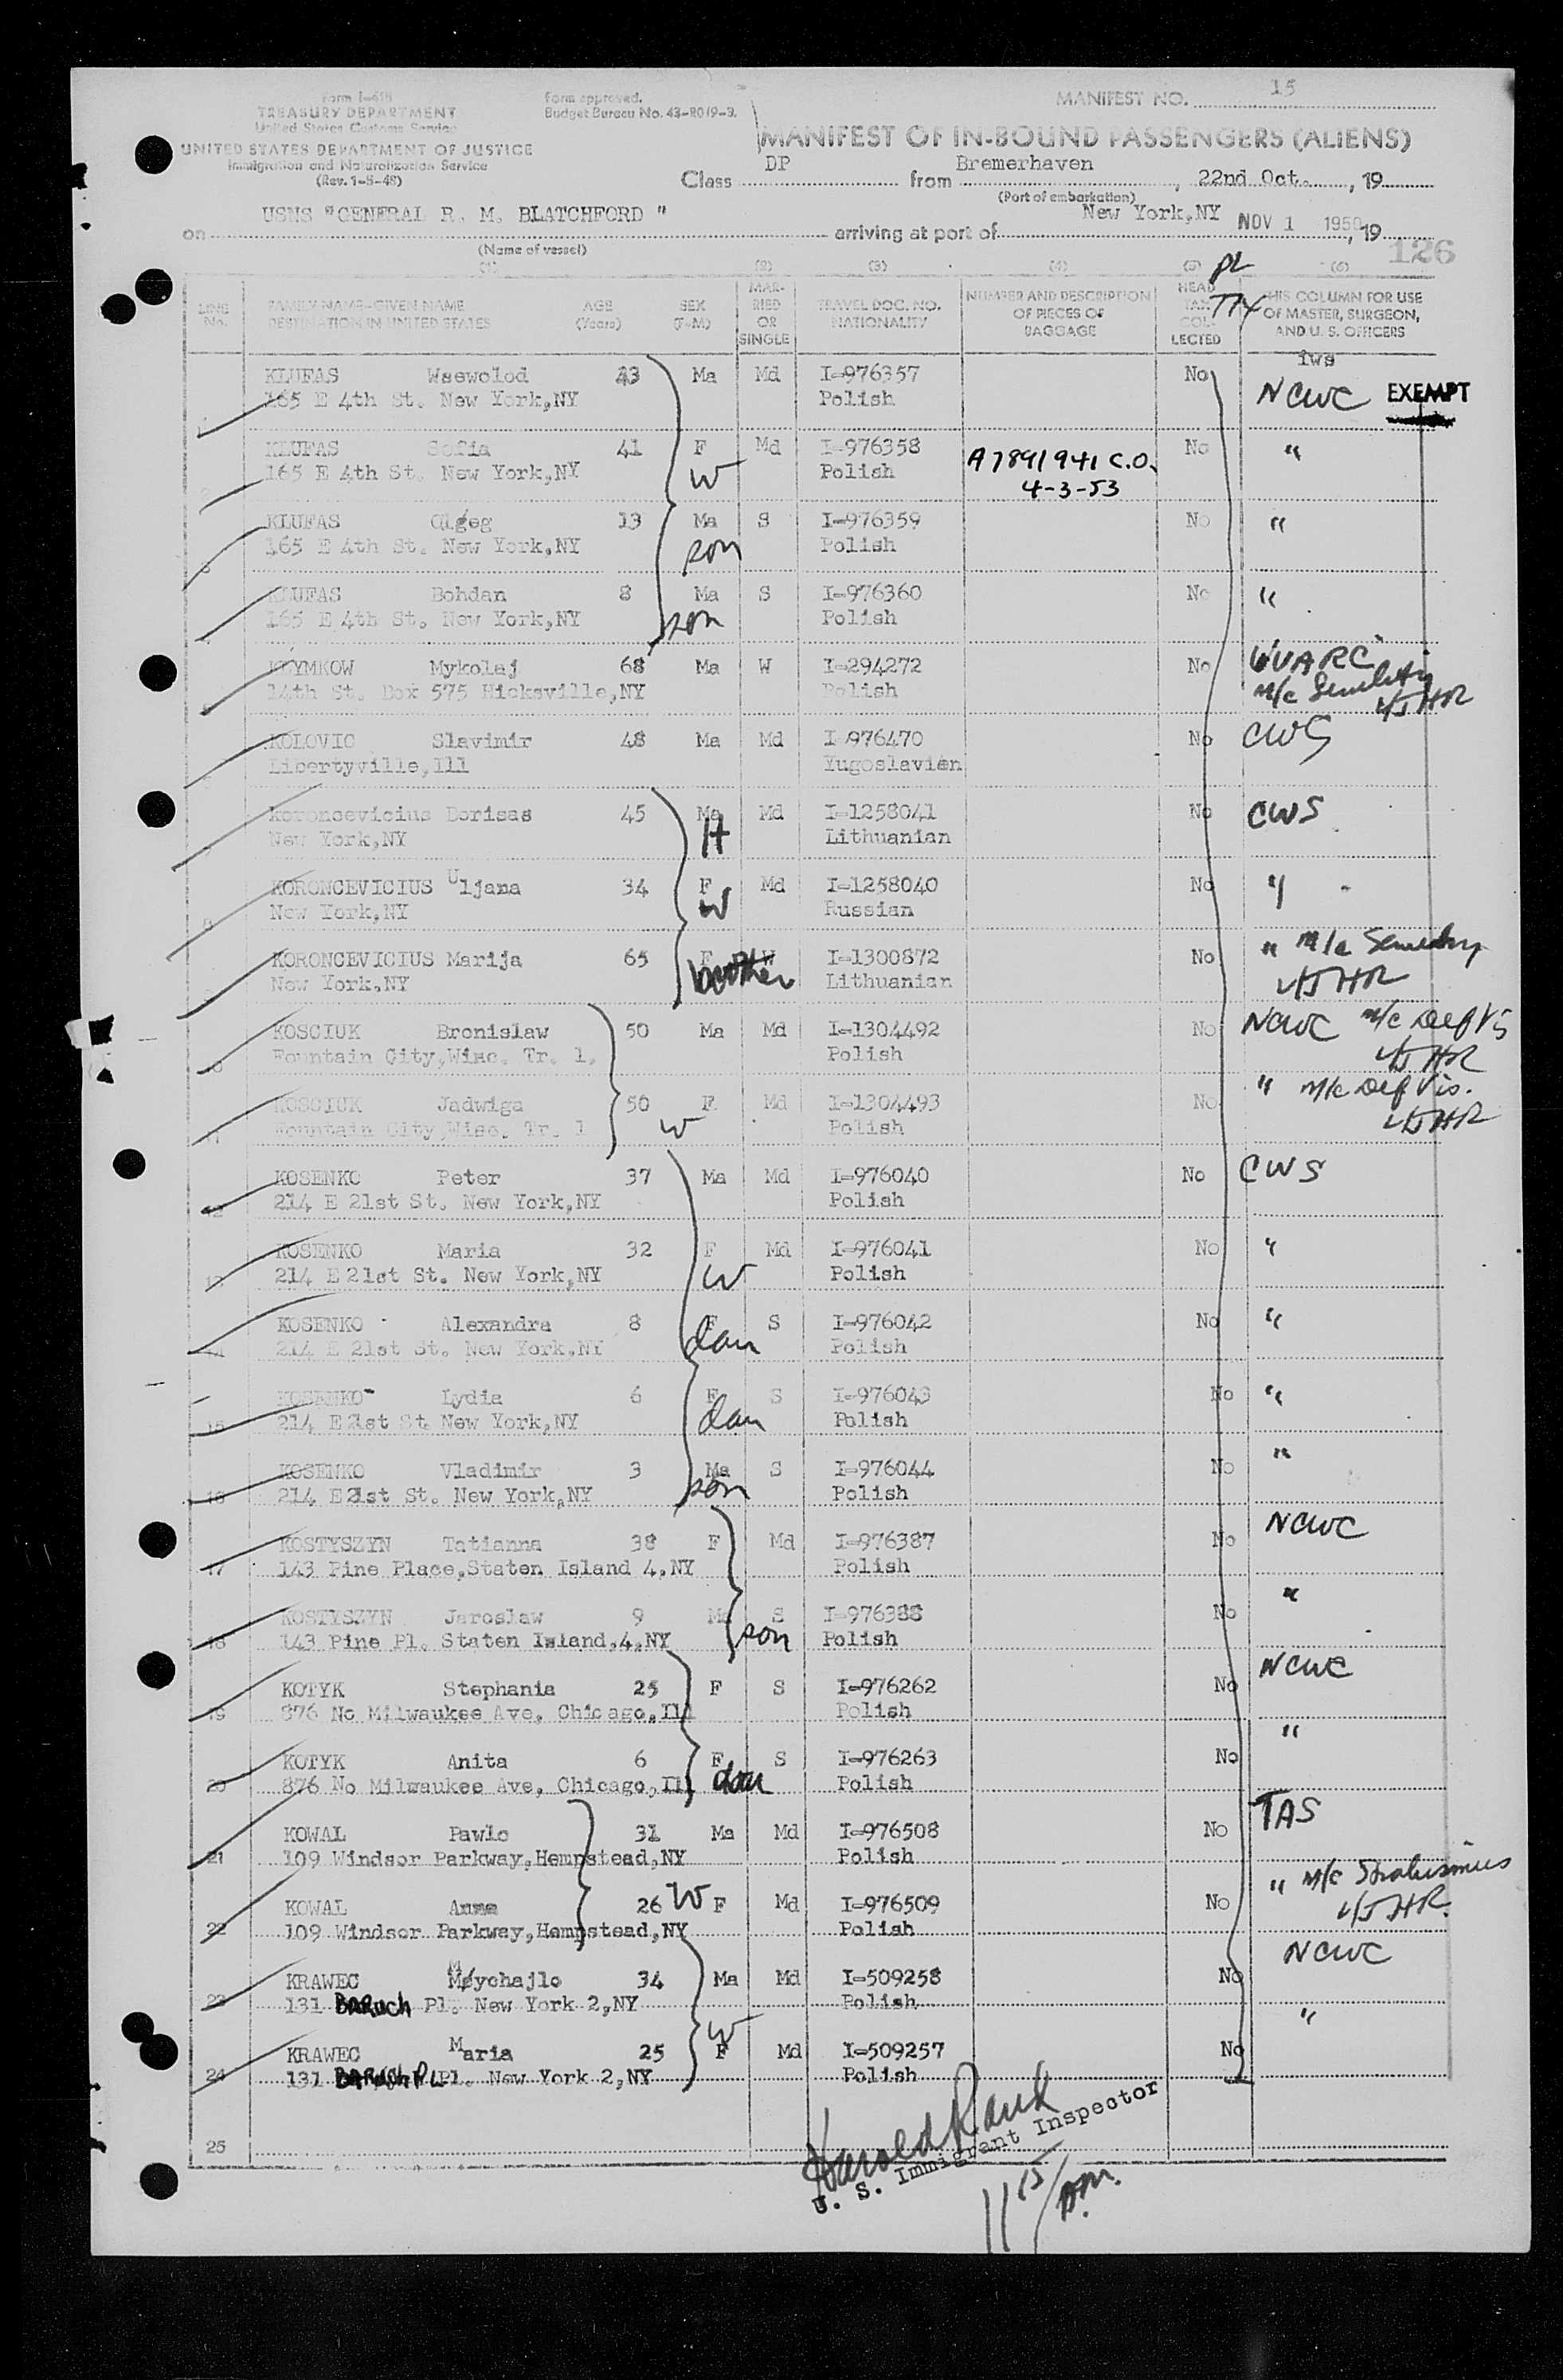 Form I-415
TREASURY DEPARTMENT
United States Customs Service
UNITED STATES DEPARTMENT OF JUSTICE
Immigration and Naturalization Service
(Rev. 1-5-48)
Form approved.
Budget Bureau No. 43-R019-3.
MANIFEST NO. 15
MANIFEST OF IN-BOUND PASSENGERS (ALIENS)
Class DP from Bremerhaven, 22nd Oct., 19
(Port of embarkation)
on USNS "GENERAL R. M. BLATCHFORD " arriving at port of New York,NY NOV 1 1950, 19
(Name of vessel)
126
(1) (2) (3) (4) (5) (6)
LINE No. FAMILY NAME-GIVEN NAME DESTINATION IN UNITED STATES AGE (Years) SEX (F-M) MARRIED OR SINGLE TRAVEL DOC. NO. NATIONALITY NUMBER AND DESCRIPTION OF PIECES OF BAGGAGE HEAD TAX COLLECTED THIS COLUMN FOR USE OF MASTER, SURGEON, AND U. S. OFFICERS
iws
KLUFAS Wsewolod 43 Ma Md I-976357 No NCWC EXEMPT
165 E 4th St. New York,NY Polish
KLUFAS Sofia 41 F Md I-976358 No "
165 E 4th St. New York,NY W Polish A7891941 C.O.
4-3-53
KLUFAS 13 Ma S I-976359 No "
165 E 4th St. New York,NY son Polish
KLUFAS Bohdan 8 Ma S I-976360 No "
165 E 4th St. New York,NY son Polish
KLYMKOW Mykolaj 68 Ma W I-294272 No UUARC
14th St. Box 575 Hicksville,NY Polish m/c
KOLOVIC Slavimir 48 Ma Md I-976470 No CWS
Libertyville,Ill Yugoslavian
Koroncevicius Borisas 45 Ma Md I-1258041 No CWS
New York,NY H Lithuanian
KORONCEVICIUS Uljana 34 F Md I-1258040 No "
New York,NY W Russian
KORONCEVICIUS Marija 65 F W I-1300872 No " m/c
New York,NY Lithuanian
KOSCIUK Bronislaw 50 Ma Md I-1304492 No NCWC m/c Def Vis
10 Fountain City,Wisc. Tr. 1. Polish
KOSCIUK Jadwiga 50 F Md I-1304493 No " m/c Def Vis.
11 Fountain City,Wisc. Tr. 1 W Polish
KOSENKO Peter 37 Ma Md I-976040 No CWS
12 214 E 21st St. New York,NY Polish
KOSENKO Maria 32 F Md I-976041 No "
13 214 E 21st St. New York,NY W Polish
KOSENKO Alexandra 8 F S I-976042 No "
14 214 E 21st St. New York,NY dau Polish
KOSENKO Lydia 6 F S I-976043 No "
15 214 E 21st St New York,NY dau Polish
KOSENKO Vladimir 3 Ma S I-976044 No "
16 214 E 21st St. New York,NY son Polish
KOSTYSZYN Tatianna 38 F Md I-976387 No NCWC
17 143 Pine Place,Staten Island 4,NY Polish
KOSTYSZYN Jaroslaw 9 Ma S I-976388 No "
18 143 Pine Pl. Staten Island,4,NY son Polish
KOTYK Stephania 25 F S I-976262 No NCWC
19 876 No Milwaukee Ave, Chicago,Ill Polish
KOTYK Anita 6 F S I-976263 No "
20 876 No Milwaukee Ave, Chicago,Ill dau Polish
KOWAL Pawlo 31 Ma Md I-976508 No TAS
21 109 Windsor Parkway,Hempstead,NY Polish
KOWAL Anna 26 W F Md I-976509 No " m/c
22 109 Windsor Parkway,Hempstead,NY Polish
KRAWEC Mychajlo 34 Ma Md I-509258 No NCWC
23 131 BARUCH Pl. New York 2,NY Polish
KRAWEC Maria 25 W F Md I-509257 No "
24 131 BARUCH PL Pl. New York 2,NY Polish
25
Harold Rauk
U. S. Immigrant Inspector
11 15/AM.